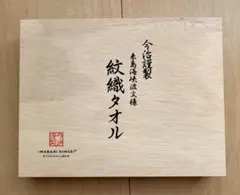 今治謹製
来島海峡波文様
紋織タオル
IMABARI KINSEI